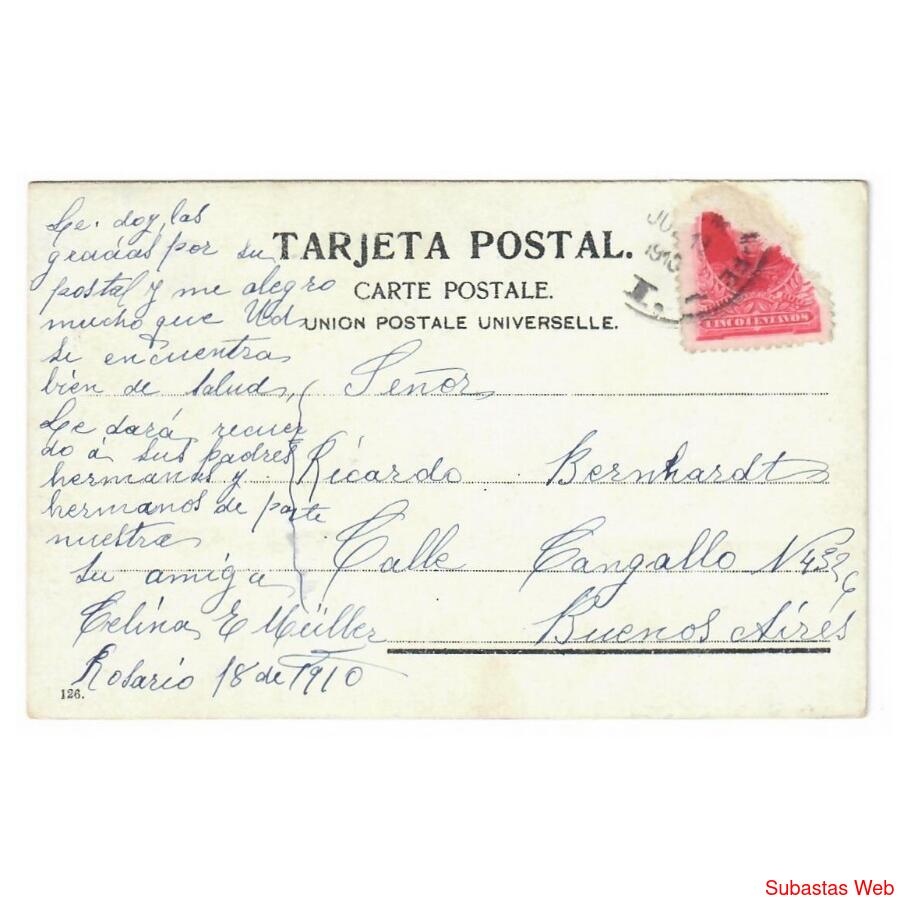 Le. doy las
graciias por su
postal y me alegro
mucho que Ud
se encuentra
bien de salud,
Le dará recuer
do á sus padres
hermanas y
hermanos de parte
nuestra
Su amiga
Celina E Müller
Rosario 18 de 1910
126.
TARJETA POSTAL.
CARTE POSTALE.
UNION POSTALE UNIVERSELLE.
Señor
Ricardo Bernhardt
Calle Cangallo N 4326
Buenos Aires
1910
CINCO CENTAVOS
Subastas Web